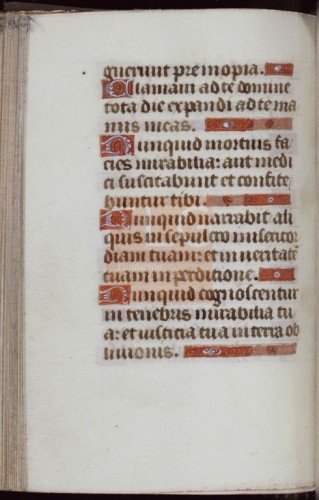 guerunt pre inopia.
Clamavi ad te domine
tota die expandi ad te ma
nus meas.
Nunquid mortuis fa
cies mirabilia: aut medi
ci suscitabunt et confite
buntur tibi.
Nunquid narrabit ali
quis in sepulcro misericor
diam tuam: et in veritate
tuam in perditione.
Nunquid cognoscentur
in tenebris mirabilia tu
a: et iusticia tua in terra ob
livionis.